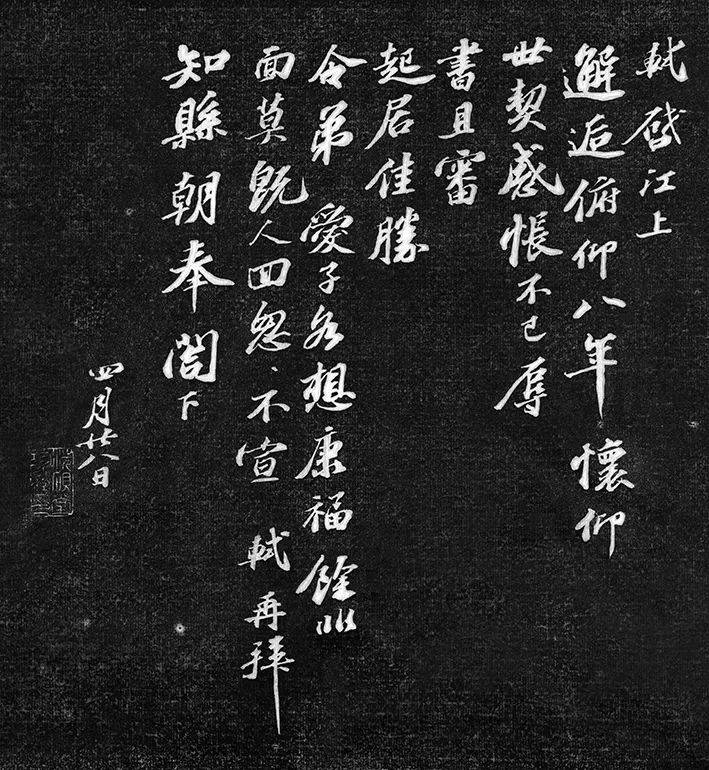 軾啓江上
邂逅俯仰八年 懷仰
世契感悵不已辱
書且審
起居佳勝
令弟 愛子各想康福餘非
面莫既人回怱〻不宣 軾再拜
知縣朝奉閤下
四月廿八日